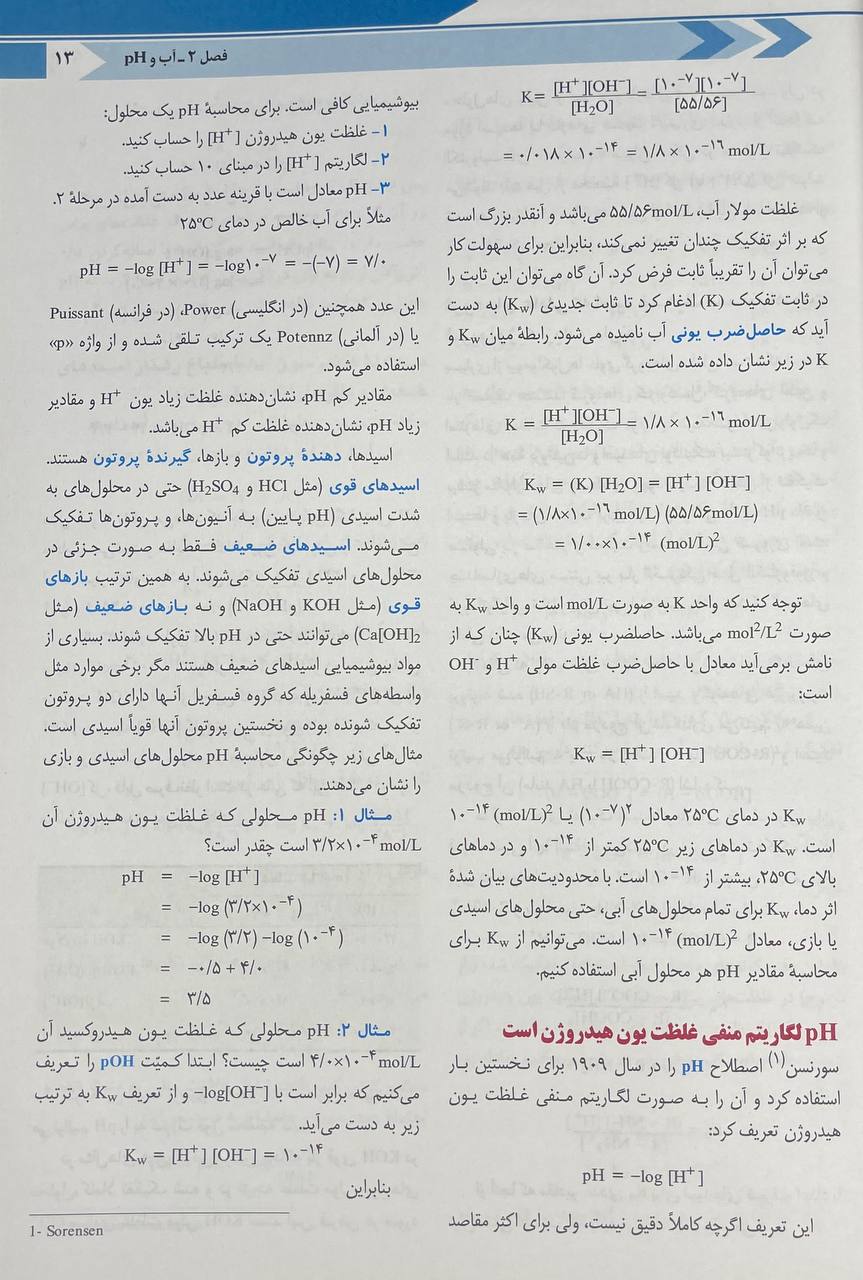 فصل ۲ ـ آب و pH
۱۳
K = [H⁺][OH⁻] / [H₂O] = [۱۰⁻⁷][۱۰⁻⁷] / [۵۵/۵۶]
= ۰/۰۱۸ × ۱۰⁻¹⁴ = ۱/۸ × ۱۰⁻¹⁶ mol/L
غلظت مولار آب، ۵۵/۵۶mol/L می‌باشد و آنقدر بزرگ است
که بر اثر تفکیک چندان تغییر نمی‌کند، بنابراین برای سهولت کار
می‌توان آن را تقریباً ثابت فرض کرد. آن گاه می‌توان این ثابت را
در ثابت تفکیک (K) ادغام کرد تا ثابت جدیدی (Kw) به دست
آید که حاصل‌ضرب یونی آب نامیده می‌شود. رابطهٔ میان Kw و
K در زیر نشان داده شده است.
K = [H⁺][OH⁻] / [H₂O] = ۱/۸ × ۱۰⁻¹⁶ mol/L
Kw = (K) [H₂O] = [H⁺] [OH⁻]
= (۱/۸×۱۰⁻¹⁶ mol/L) (۵۵/۵۶mol/L)
= ۱/۰۰×۱۰⁻¹⁴ (mol/L)²
توجه کنید که واحد K به صورت mol/L است و واحد Kw به
صورت mol²/L² می‌باشد. حاصلضرب یونی (Kw) چنان که از
نامش برمی‌آید معادل با حاصل‌ضرب غلظت مولی H⁺ و OH⁻
است:
Kw = [H⁺] [OH⁻]
Kw در دمای ۲۵°C معادل (۱۰⁻⁷)² یا ۱۰⁻¹⁴ (mol/L)²
است. Kw در دماهای زیر ۲۵°C کمتر از ۱۰⁻¹⁴ و در دماهای
بالای ۲۵°C، بیشتر از ۱۰⁻¹⁴ است. با محدودیت‌های بیان شدهٔ
اثر دما، Kw برای تمام محلول‌های آبی، حتی محلول‌های اسیدی
یا بازی، معادل ۱۰⁻¹⁴ (mol/L)² است. می‌توانیم از Kw برای
محاسبهٔ مقادیر pH هر محلول آبی استفاده کنیم.
pH لگاریتم منفی غلظت یون هیدروژن است
سورنسن(۱) اصطلاح pH را در سال ۱۹۰۹ برای نخستین بار
استفاده کرد و آن را به صورت لگاریتم منفی غلظت یون
هیدروژن تعریف کرد:
pH = −log [H⁺]
این تعریف اگرچه کاملاً دقیق نیست، ولی برای اکثر مقاصد
بیوشیمیایی کافی است. برای محاسبهٔ pH یک محلول:
۱- غلظت یون هیدروژن [H⁺] را حساب کنید.
۲- لگاریتم [H⁺] را در مبنای ۱۰ حساب کنید.
۳- pH معادل است با قرینه عدد به دست آمده در مرحلهٔ ۲.
مثلاً برای آب خالص در دمای ۲۵°C
pH = −log [H⁺] = −log۱۰⁻⁷ = −(−۷) = ۷/۰
این عدد همچنین (در انگلیسی) Power، (در فرانسه) Puissant
یا (در آلمانی) Potennz یک ترکیب تلقی شده و از واژه «p»
استفاده می‌شود.
مقادیر کم pH، نشان‌دهنده غلظت زیاد یون H⁺ و مقادیر
زیاد pH، نشان‌دهنده غلظت کم H⁺ می‌باشد.
اسیدها، دهندهٔ پروتون و بازها، گیرندهٔ پروتون هستند.
اسیدهای قوی (مثل HCl و H₂SO₄) حتی در محلول‌های به
شدت اسیدی (pH پایین) به آنیون‌ها، و پروتون‌ها تفکیک
می‌شوند. اسیدهای ضعیف فقط به صورت جزئی در
محلول‌های اسیدی تفکیک می‌شوند. به همین ترتیب بازهای
قوی (مثل KOH و NaOH) و نه بازهای ضعیف (مثل
Ca[OH]₂) می‌توانند حتی در pH بالا تفکیک شوند. بسیاری از
مواد بیوشیمیایی اسیدهای ضعیف هستند مگر برخی موارد مثل
واسطه‌های فسفریله که گروه فسفریل آنها دارای دو پروتون
تفکیک شونده بوده و نخستین پروتون آنها قویاً اسیدی است.
مثال‌های زیر چگونگی محاسبهٔ pH محلول‌های اسیدی و بازی
را نشان می‌دهند.
مثال ۱: pH محلولی که غلظت یون هیدروژن آن
۳/۲×۱۰⁻⁴ mol/L است چقدر است؟
pH = −log [H⁺]
= −log (۳/۲×۱۰⁻⁴)
= −log (۳/۲) −log (۱۰⁻⁴)
= −۰/۵ + ۴/۰
= ۳/۵
مثال ۲: pH محلولی که غلظت یون هیدروکسید آن
۴/۰×۱۰⁻⁴ mol/L است چیست؟ ابتدا کمیّت pOH را تعریف
می‌کنیم که برابر است با −log[OH⁻] و از تعریف Kw به ترتیب
زیر به دست می‌آید.
Kw = [H⁺] [OH⁻] = ۱۰⁻¹⁴
بنابراین
1- Sorensen